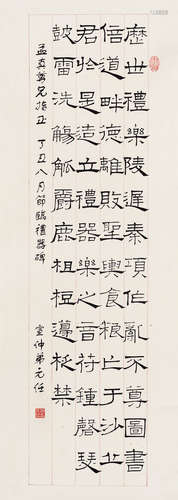 歷世禮樂陵遲秦項作亂不尊圖書
倍道畔德離敗聖輿食糧亡于沙丘
君於是造立禮器樂之音苻鍾磬瑟
鼓雷洗觴觚爵鹿柤梪籩柉禁
孟真尊兄指正 丁丑八月節臨禮器碑 宣仲弟元任